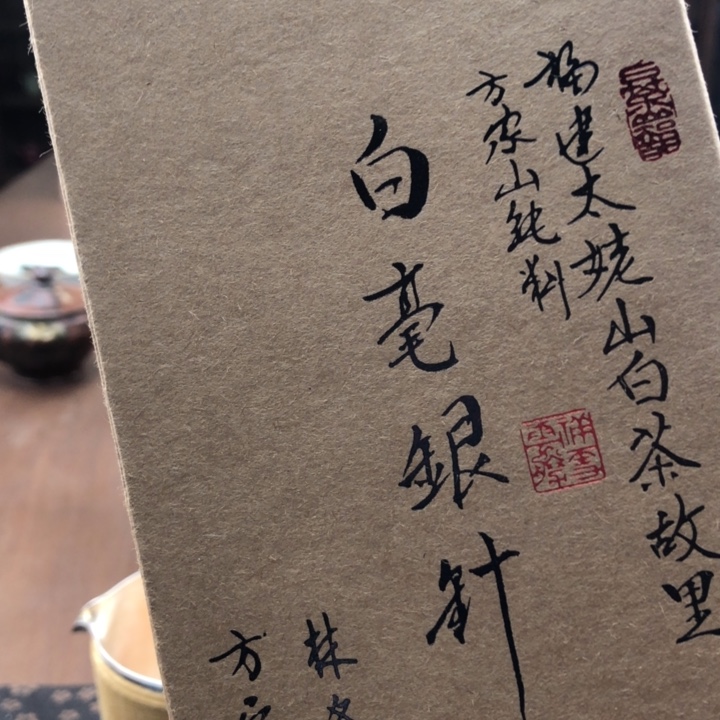 福建太姥山白茶故里
方家山純料
白毫銀針
林
方